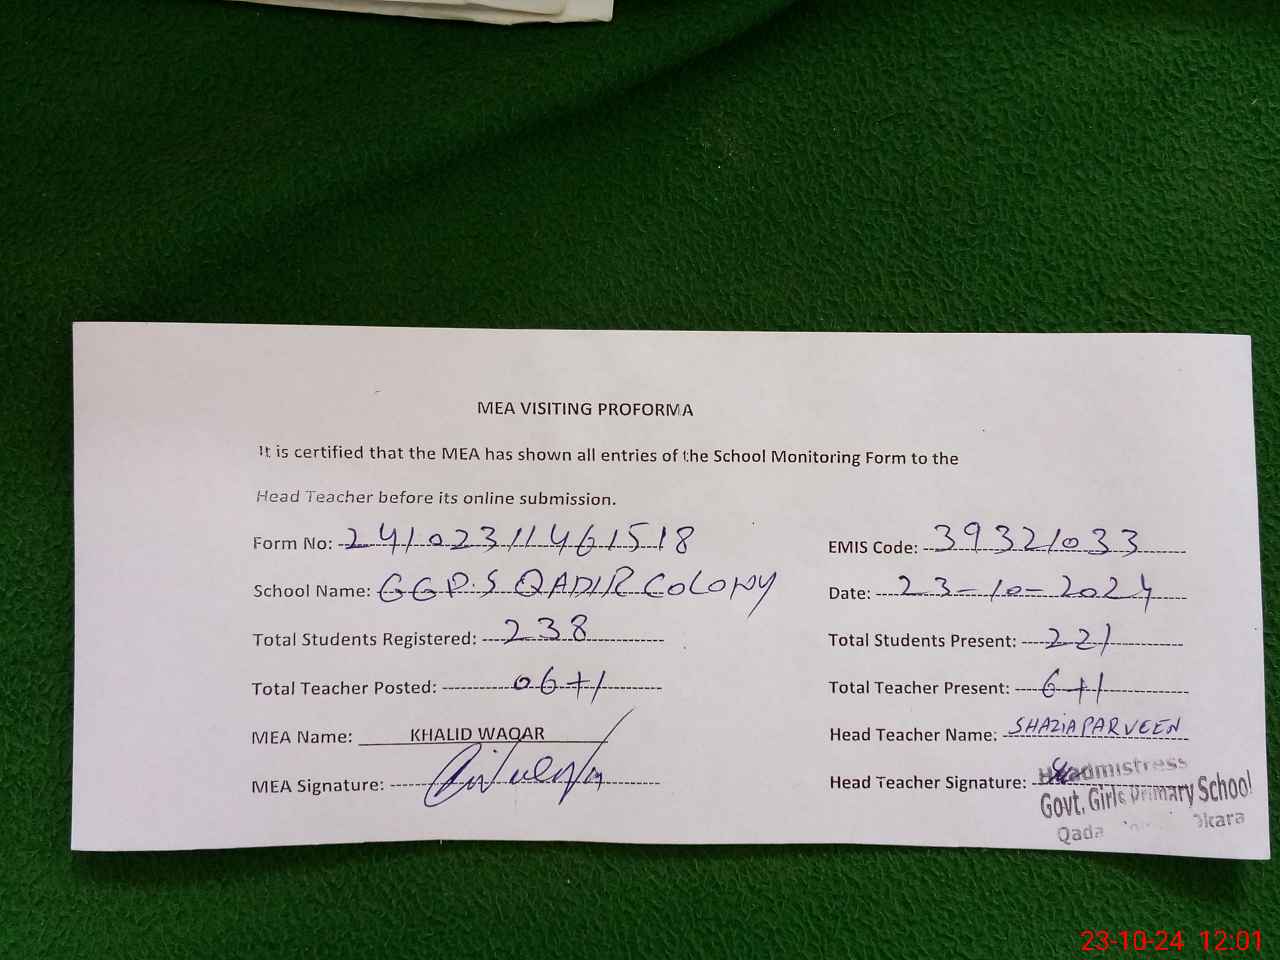 MEA VISITING PROFORMA
It is certified that the MEA has shown all entries of the School Monitoring Form to the
Head Teacher before its online submission.
Form No: 24102311461518 EMIS Code: 39321033
School Name: GGPS QADIR COLONY Date: 23-10-2024
Total Students Registered: 238 Total Students Present: 221
Total Teacher Posted: 06+1 Total Teacher Present: 6+1
MEA Name: KHALID WAQAR Head Teacher Name: SHAZIA PARVEEN
MEA Signature: Head Teacher Signature:
Headmistress
Govt. Girls Primary School
Okara
23-10-24 12:01